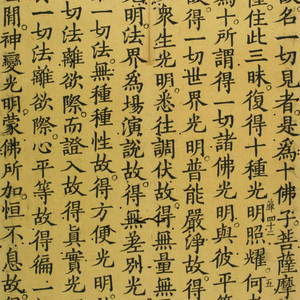 故名一切見者是為十佛子菩薩摩
廉四十三 五
薩住此三昧復得十種光明照耀何
為十所謂得一切諸佛光明與彼平
故得一切世界光明普能嚴淨故得
眾生光明悉往調伏故得無量
光明法界為場演說故得無差別光
一切法無種種性故得方便光明
一切法離欲際而證入故得真實光
一切法離欲際心平等故得徧一
間神變光明蒙佛所加恒不息故